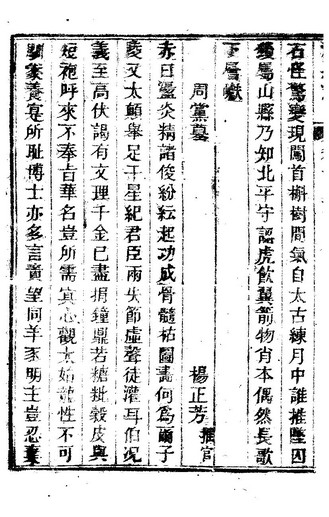 石怪驚變現闖首槲樹間氣自太古練月中誰推墜囚
鸞山縣乃知北平守認虎飲翼箭物肖本偶然長歌
下層巘
周黨墓
楊正芳
赤日靈炎精諸俊紛紜起功成骨髓枯圖畫何為爾子
陵又太顛舉足干星紀君臣兩失節虛聲徒灌耳伯況
義至高伏謁有文理千金已盡捐鐘鼎若糠粃穀皮與
短袍呼來不奉旨華名豈所需真心觀太始龍性不可
豢養宴所恥博士亦多言責望同羊家明主豈忍棄